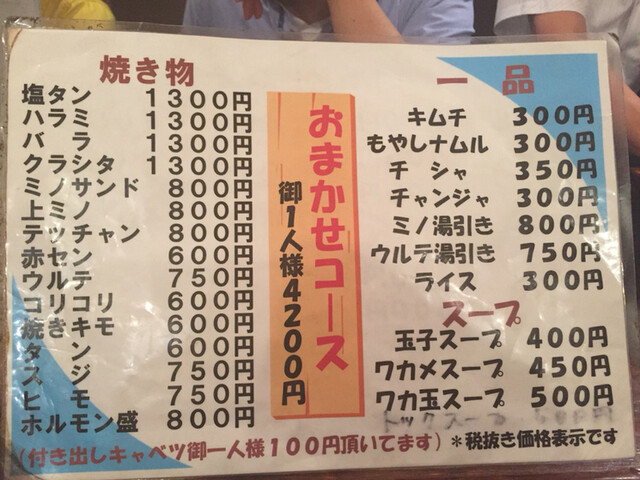 焼き物
塩タン 1300円
ハラミ 1300円
バラ 1300円
クラシタ 1300円
ミノサンド 800円
上ミノ 800円
テッチャン 800円
赤セン 600円
ウルテ 750円
コリコリ 600円
焼きキモ 600円
タン 600円
スジ 750円
ヒモ 750円
ホルモン盛 800円
おまかせコース
御1人様4200円
一品
キムチ 300円
もやしナムル 300円
チシャ 350円
チャンジャ 300円
ミノ湯引き 800円
ウルテ湯引き 750円
ライス 300円
スープ
玉子スープ 400円
ワカメスープ 450円
ワカ玉スープ 500円
トックスープ
(付き出しキャベツ御一人様100円頂いてます)
*税抜き価格表示です